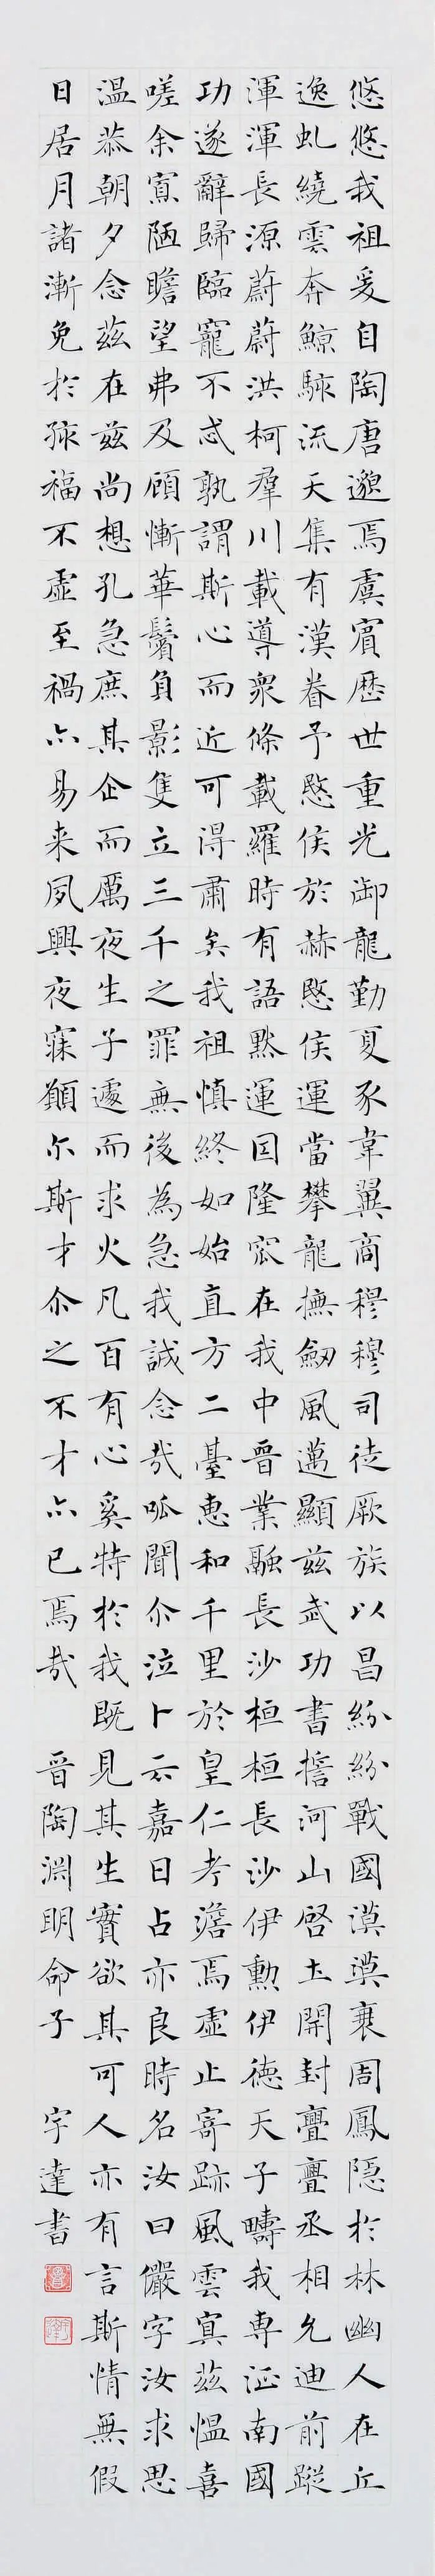 悠悠我祖爰自陶唐邈焉虞賓歷世重光御龍勤夏豕韋翼商穆穆司徒厥族以昌紛紛戰國漠漠衰周鳳隱於林幽人在丘
逸虬繞雲奔鯨駭流天集有漢眷予愍侯於赫愍侯運當攀龍撫劒風邁顯茲武功書誓河山啓土開封亹亹丞相允迪前蹤
渾渾長源蔚蔚洪柯羣川載導衆條載羅時有語默運因隆窊在我中晉業融長沙桓桓長沙伊勳伊德天子疇我專征南國
功遂辭歸臨寵不忒孰謂斯心而近可得肅矣我祖慎終如始直方二臺惠和千里於皇仁考澹焉虛止寄跡風雲寘茲愠喜
嗟余寡陋瞻望弗及顧慚華鬢負影隻立三千之罪無後為急我誠念哉呱聞尒泣卜云嘉日占亦良時名汝曰儼字汝求思
温恭朝夕念茲在茲尚想孔急庶其企而厲夜生子遽而求火凡百有心奚特於我既見其生實欲其可人亦有言斯情無假
日居月諸漸免於孩福不虛至禍亦易来夙興夜寐願尒斯才尒之不才亦已焉哉 晉陶淵明命子 宇達書